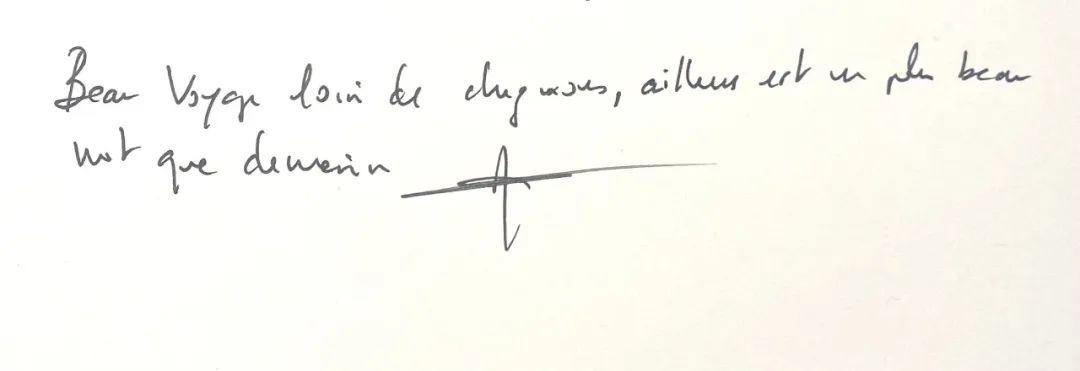 Beau Voyage loin de chez nous, ailleurs est un plus beau
mot que demain